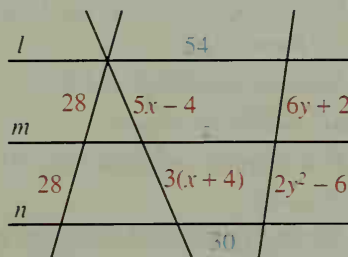 l 54
28 5x – 4 6y + 2
m
28 3(x + 4) 2y² – 6
n
30